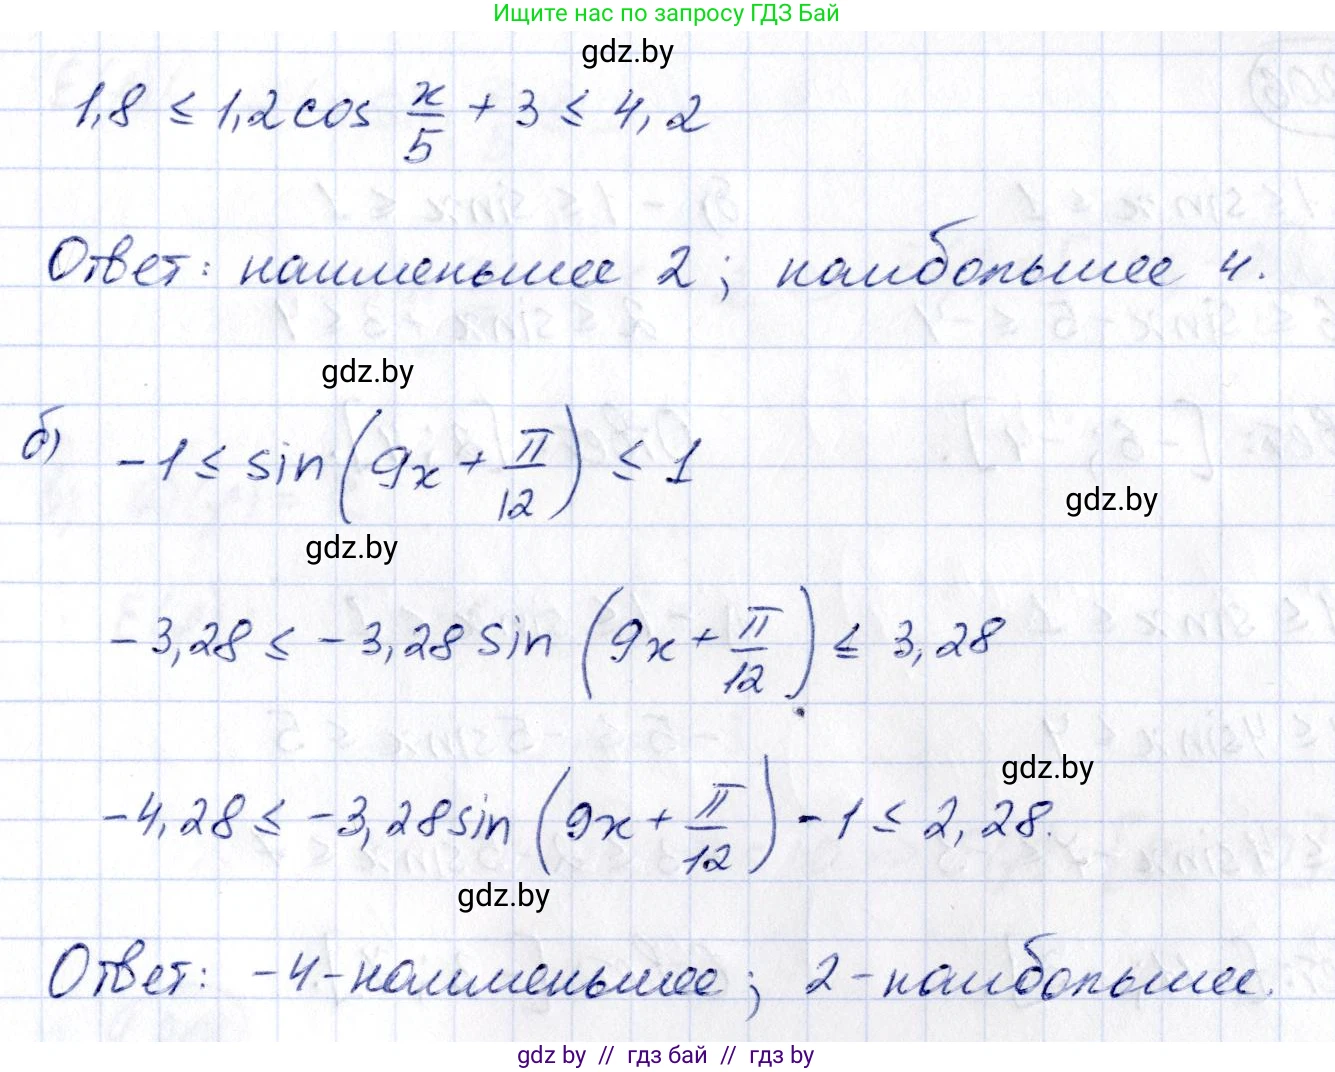 Ищите нас по запросу ГДЗ Бай
gdz.by
1,8 ≤ 1,2 cos x/5 + 3 ≤ 4,2
Ответ: наименьшее 2; наибольшее 4.
gdz.by
б) -1 ≤ sin(9x + π/12) ≤ 1
gdz.by
gdz.by
-3,28 ≤ -3,28 sin(9x + π/12) ≤ 3,28
gdz.by
-4,28 ≤ -3,28 sin(9x + π/12) - 1 ≤ 2,28.
gdz.by
Ответ: -4 - наименьшее; 2 - наибольшее.
gdz by // гдз бай // гдз by